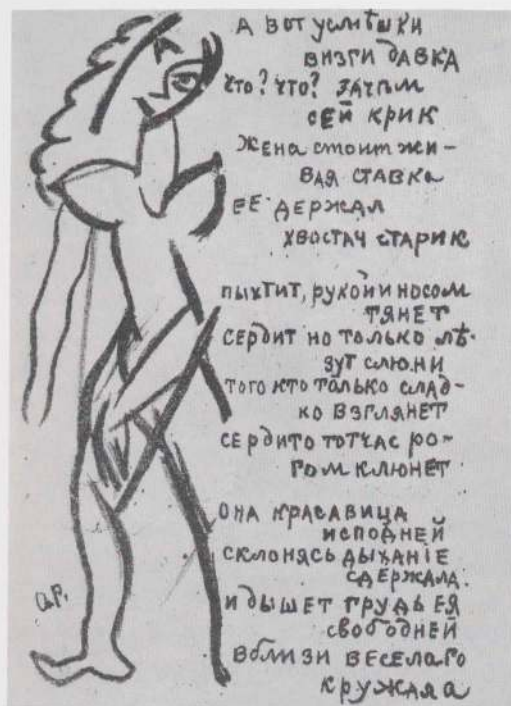 А ВОТ УСМѢШКИ
ВИЗГИ ДАВКА
ЧТО? ЧТО? ЗАЧѢМ
СЕЙ КРИК
ЖЕНА СТОИТ ЖИ-
ВАЯ СТАВКА
ЕЕ ДЕРЖАЛ
ХВОСТАЧ СТАРИК
ПЫХТИТ, РУКОЙ И НОСОМ
ТЯНЕТ
СЕРДИТ НО ТОЛЬКО ЛѢ-
ЗУТ СЛЮНИ
ТОГО КТО ТОЛЬКО СЛАД-
КО ВЗГЛЯНЕТ
СЕРДИТО ТОТЧАС РО-
ГОМ КЛЮНЕТ
ОНА КРАСАВИЦА
ИСПОДНЕЙ
СКЛОНЯСЬ ДЫХАНІЕ
СДЕРЖАЛА.
И ДЫШЕТ ГРУДЬ ЕЯ
СВОБОДНЕЙ
ВБЛИЗИ ВЕСЕЛАГО
КРУЖАЛА
О.Р.